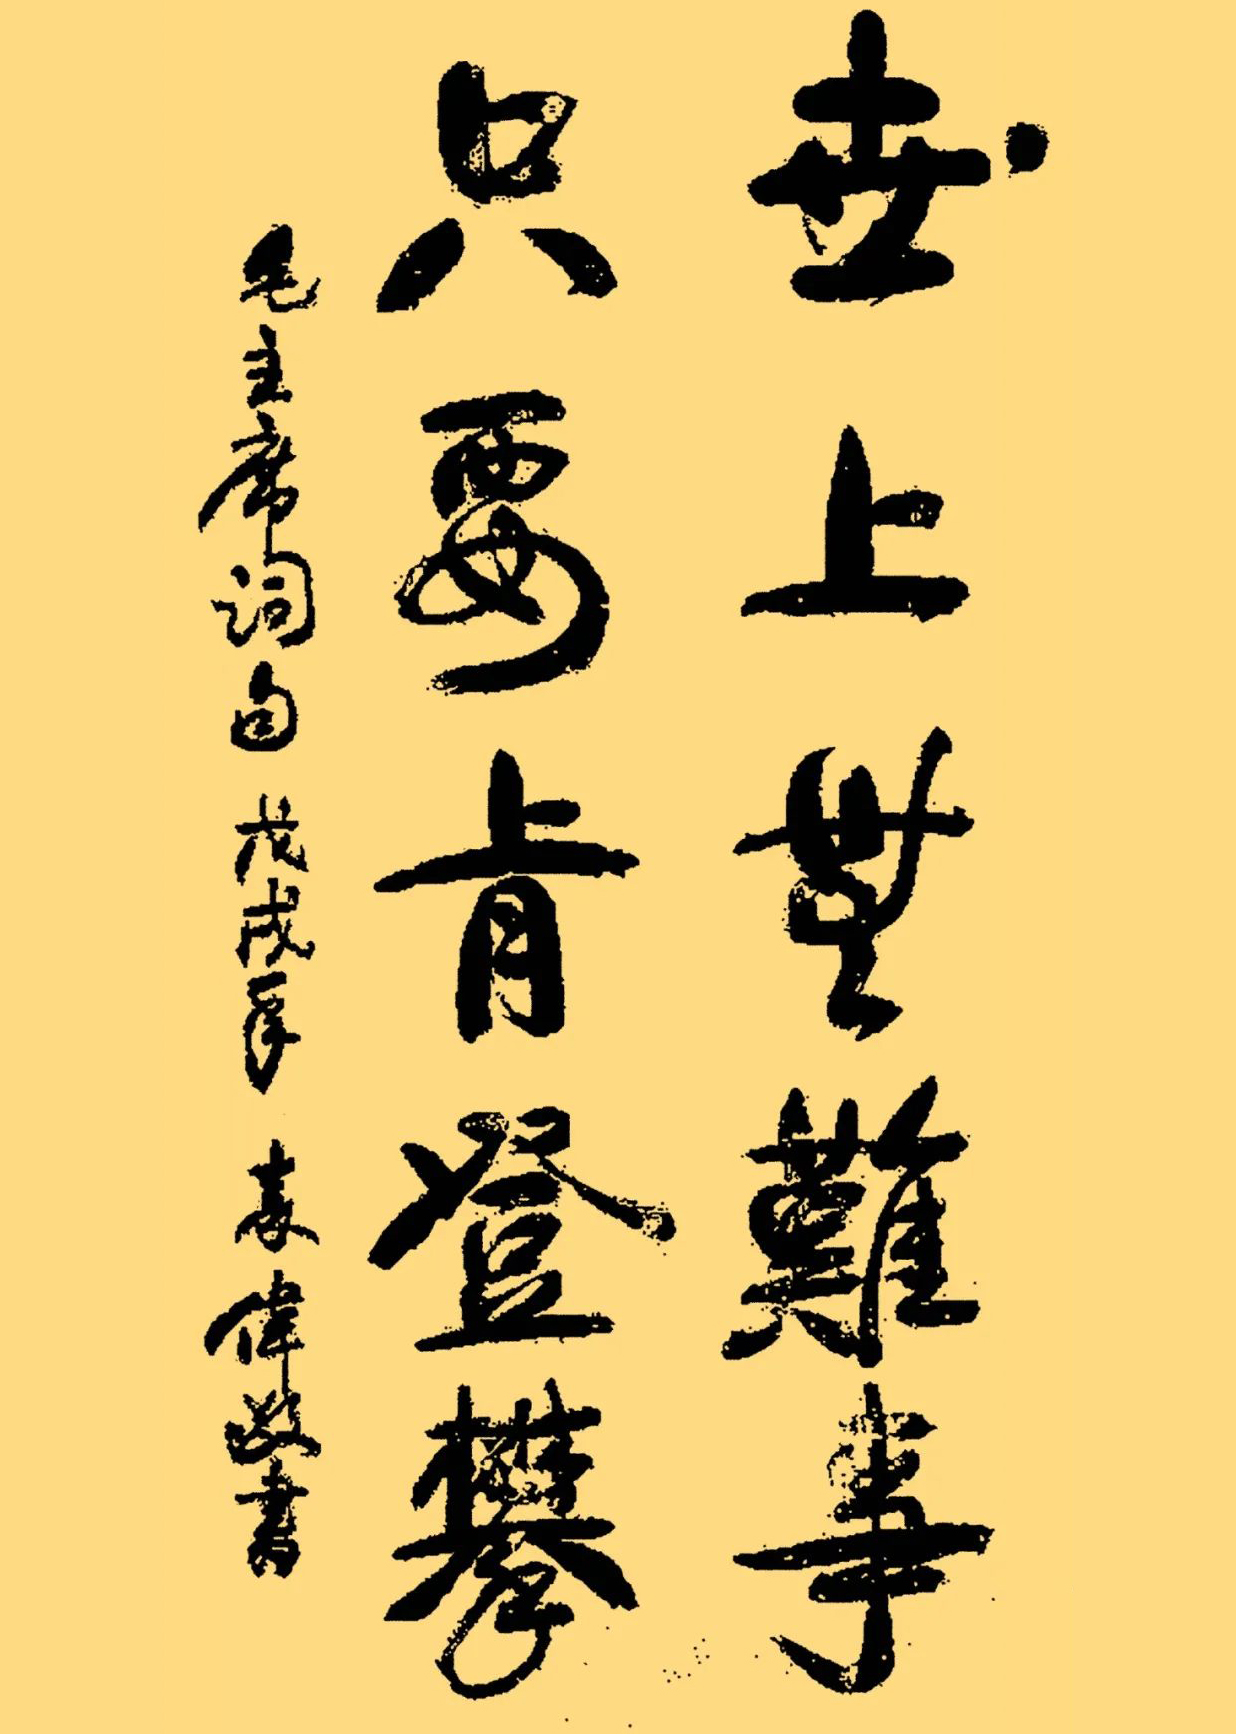 世上無難事
只要肯登攀
毛主席詞句 戊戌年 袁偉敬書